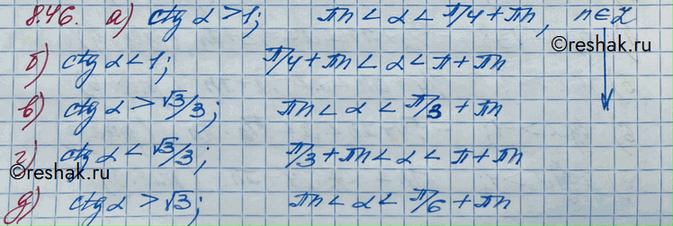 8.46. а) ctg α > 1; πn < α < π/4 + πn, n∈Z
© reshak.ru
б) ctg α < 1; π/4 + πn < α < π + πn
в) ctg α > √3/3; πn < α < π/3 + πn
г) ctg α < √3/3; π/3 + πn < α < π + πn
© reshak.ru
д) ctg α > √3; πn < α < π/6 + πn